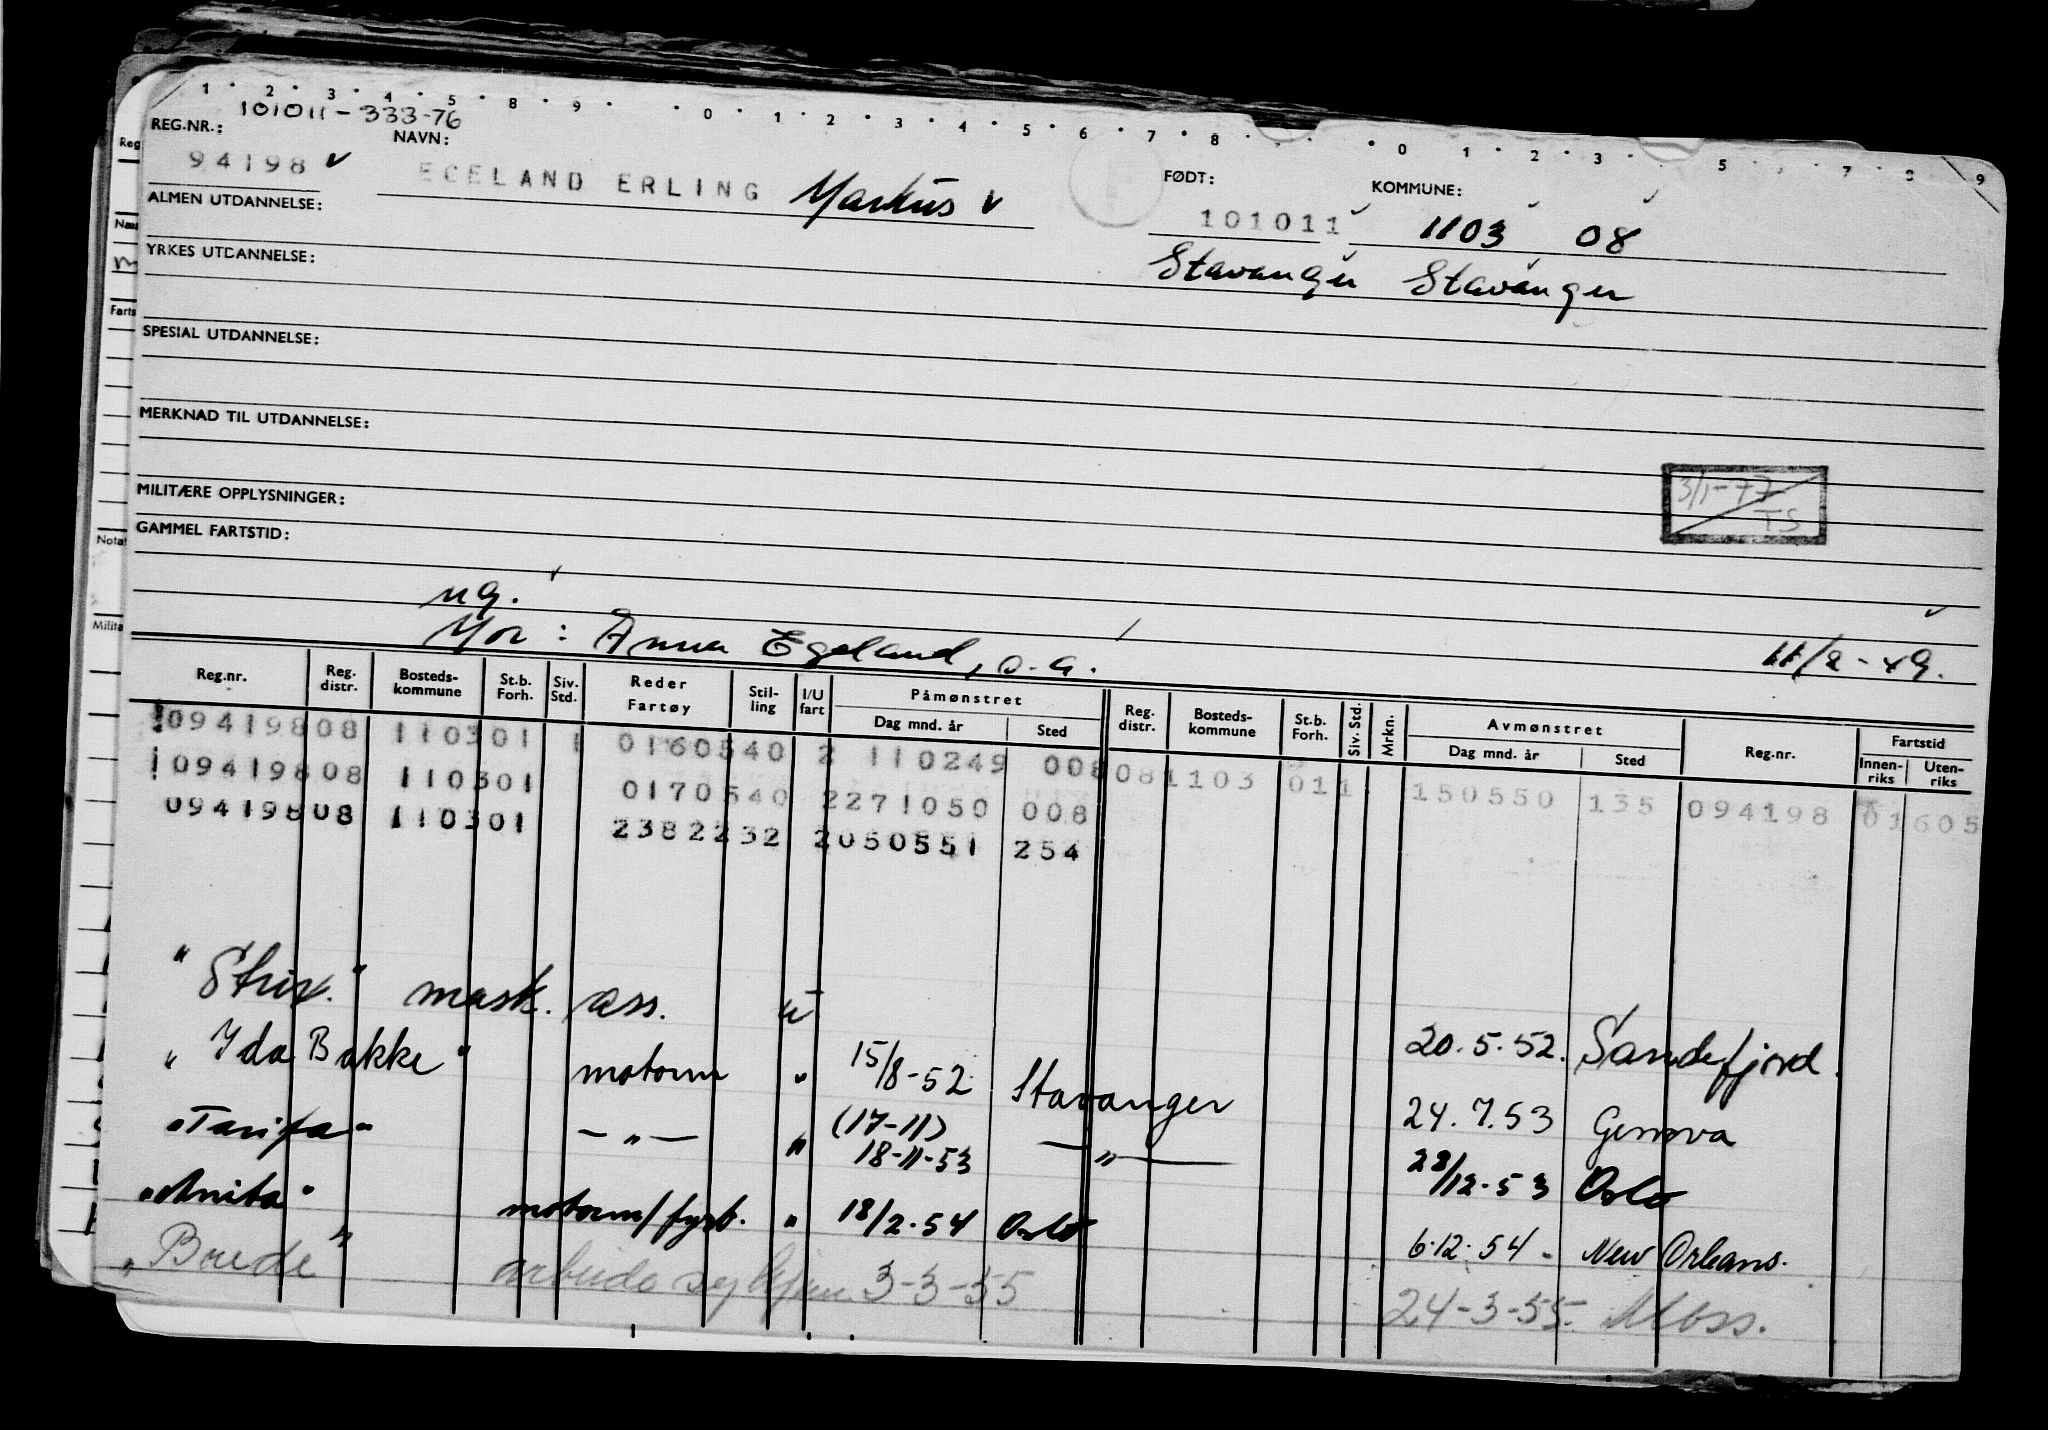 1 · 2 · 3 · 4 · 5 · 8 · 9 · · 0 · 1 · 2 · 3 · 4 · 5 · 6 · 7 · 8 · · 0 · 1 · 2 · 3 · 5 · 7 · 9
101011-333-76
REG.NR.: NAVN: FØDT: KOMMUNE:
94198 EGELAND ERLING Markus 101011 1103 08
ALMEN UTDANNELSE:
Stavanger Stavanger
YRKES UTDANNELSE:
SPESIAL UTDANNELSE:
MERKNAD TIL UTDANNELSE:
3/1-77
TS
MILITÆRE OPPLYSNINGER:
GAMMEL FARTSTID:
ug.
Mor: Anna Egeland, s.a. 11/2-49.
Reg.nr. Reg. distr. Bosteds-kommune St.b. Forh. Siv. Std. Reder Fartøy Stil-ling I/U fart Påmønstret Dag mnd. år Sted Reg. distr. Bosteds-kommune St.b. Forh. Siv. Std. Mrkn. Avmønstret Dag mnd. år Sted Reg.nr. Fartstid Innen-riks Uten-riks
09419808 110301 1 0160540 2 110249 008 081103 011 150550 135 094198 01605
09419808 110301 0170540 2271050 008
09419808 110301 2382232 2050551 254
"Strix." mask. ass. u 20.5.52. Sandefjord.
"Ida Bakke" motorm " 15/8-52 Stavanger 24.7.53 Genova
"Tarifa" —"— " (17-11) 18-11-53 —"— 28/12-53 Oslo
"Anita" motorm/fyrb. " 18/2-54 Oslo 6.12.54 - New Orleans.
" " 3-3-55 24-3-55. Moss.